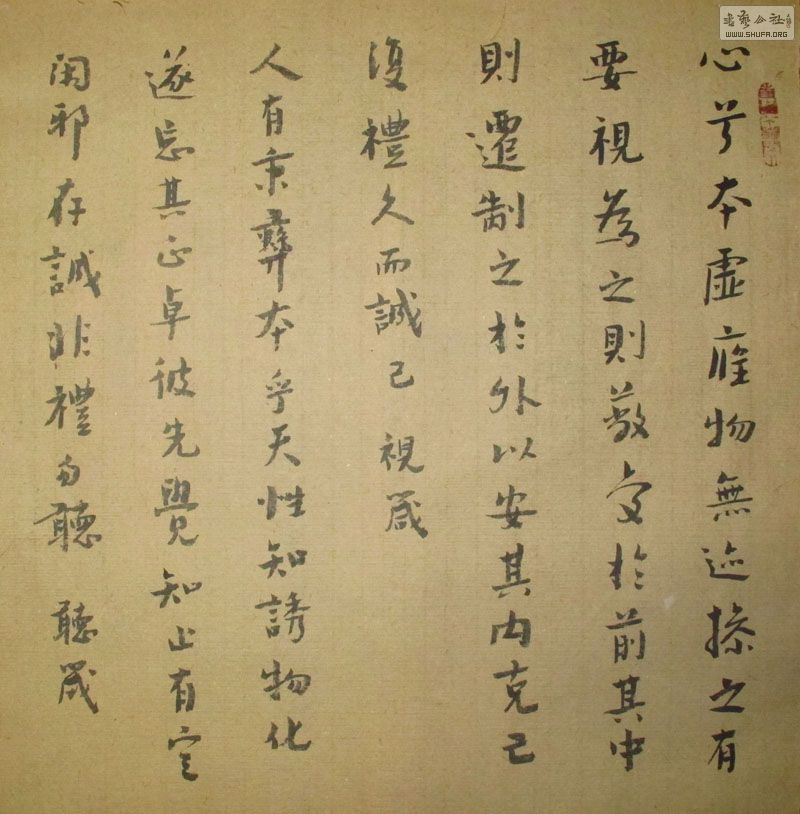 心兮本虛應物無迹操之有
要視為之則蔽交於前其中
則遷制之於外以安其內克己
復禮久而誠己 視箴
人有秉彝本乎天性知誘物化
遂忘其正卓彼先覺知止有定
閑邪存誠非禮勿聽 聽箴
書藝公社
WWW.SHUFA.ORG